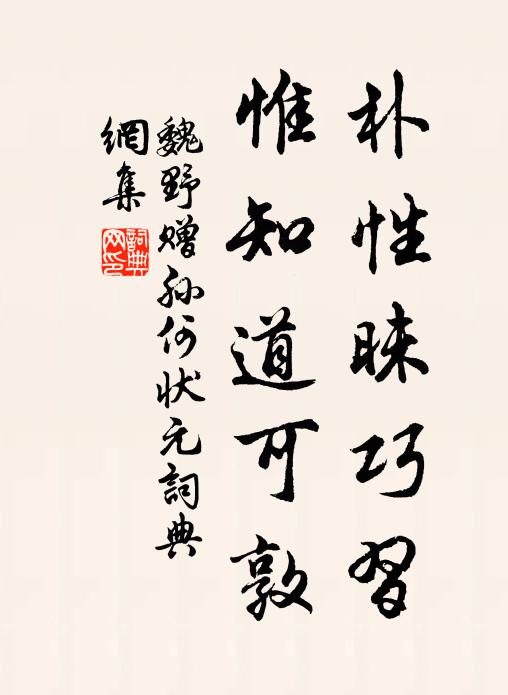 朴性昧巧習
惟知道可敦
魏野贈孫何状元詞典
網集
詞典
网印